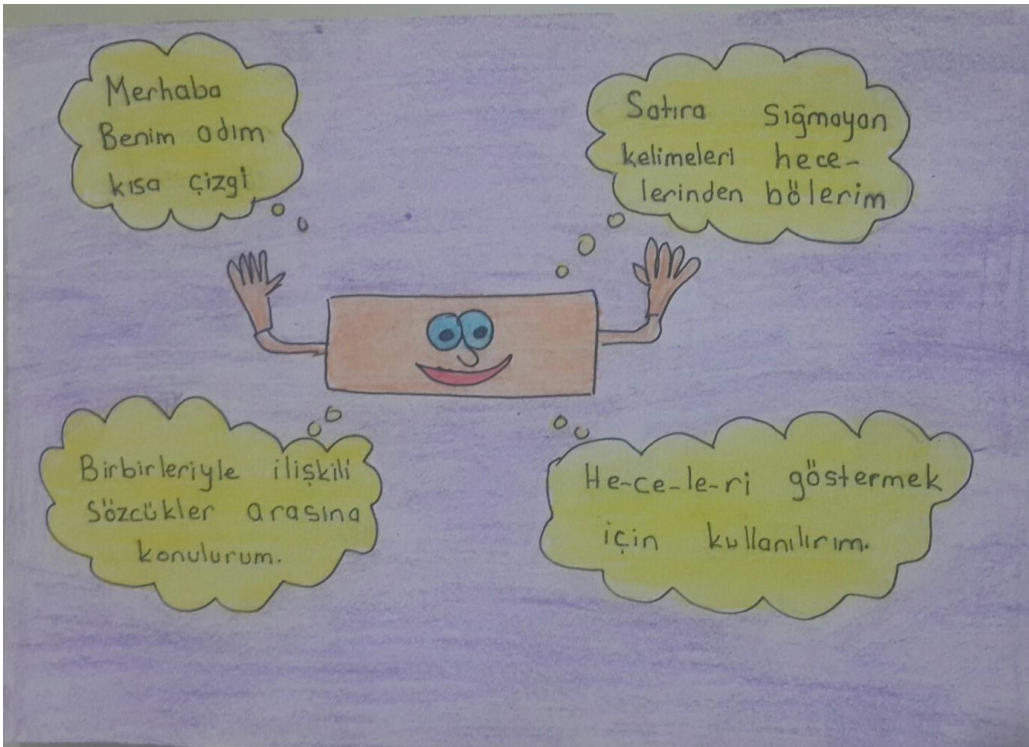 Merhaba
Benim adım
kısa çizgi
Satıra sığmayan
kelimeleri hece-
lerinden bölerim
Birbirleriyle ilişkili
sözcükler arasına
konulurum.
He-ce-le-ri göstermek
için kullanılırım.